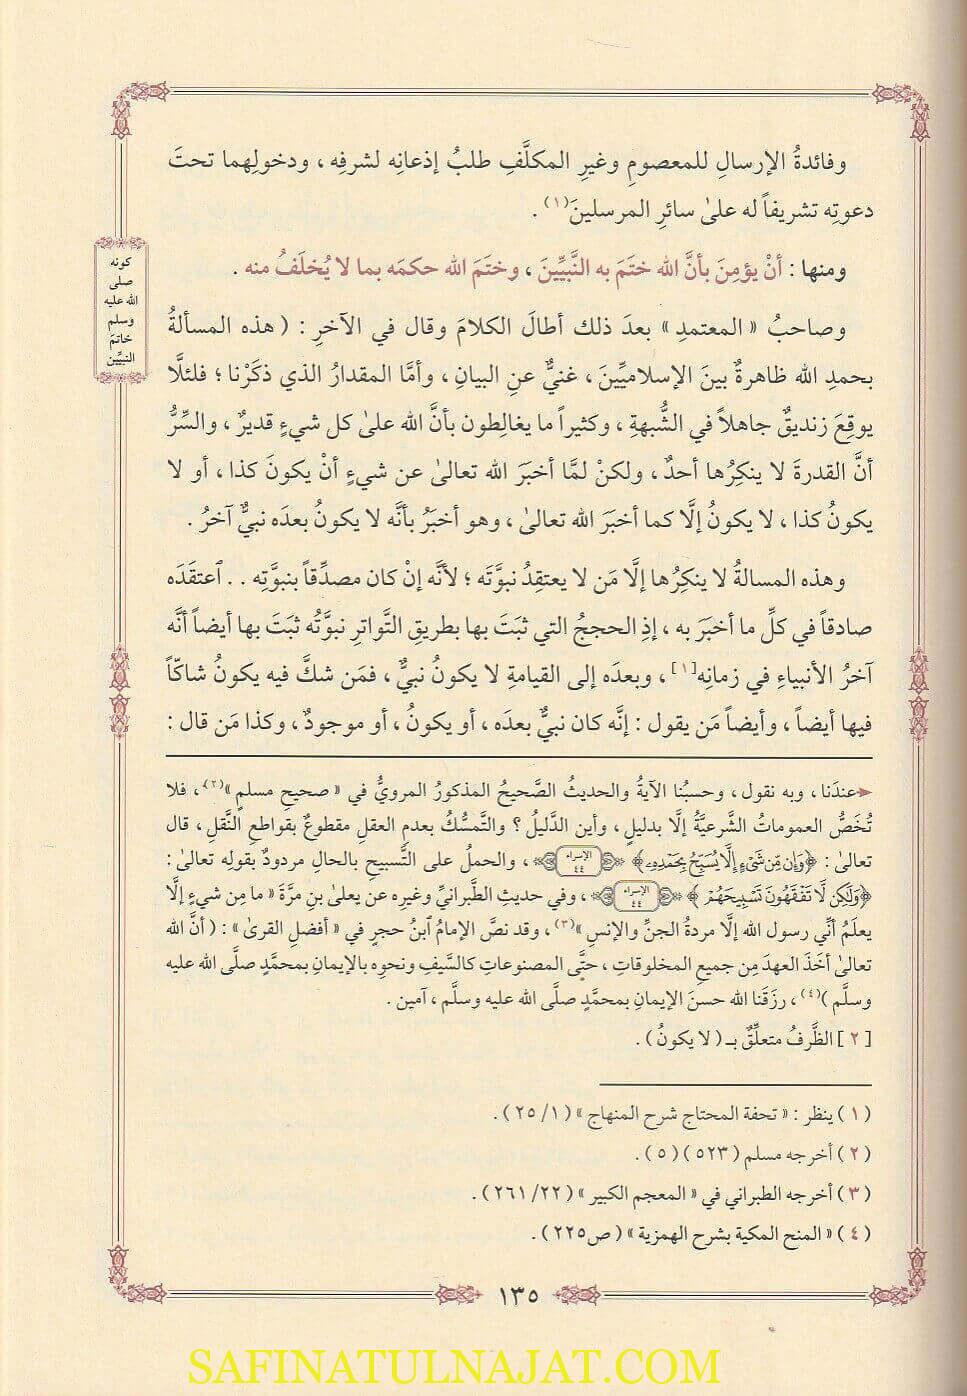 وفائدةُ الإرسالِ للمعصومِ وغيرِ المكلَّفِ طلبُ إذعانِه لشرفِه ، ودخولِهما تحتَ
دعوتِه تشريفاً له علىٰ سائرِ المرسلينَ(١) .
ومنها : أنْ يؤمِنَ بأنَّ الله ختَمَ به النَّبيِّينَ ، وختَمَ الله حكمَه بما لا يُخلَفُ منه .
كونه
صلى
الله عليه
وسلم
خاتمَ
النبيِّين
وصاحبُ « المعتمدِ » بعدَ ذلك أطالَ الكلامَ وقال في الآخرِ : ( هذه المسألةُ
بحمدِ الله ظاهرةٌ بينَ الإسلاميِّينَ ، غنيٌّ عنِ البيانِ ، وأمَّا المقدارُ الذي ذكَرْنا ؛ فلئلَّا
يوقِعَ زنديقٌ جاهلاً في الشُّبهةِ ، وكثيراً ما يغالِطون بأنَّ الله علىٰ كل شيءٍ قديرٌ ، والسِّرُّ
أنَّ القدرةَ لا ينكِرُها أحدٌ ، ولكنْ لمَّا أخبَرَ الله تعالىٰ عن شيءٍ أنْ يكونَ كذا ، أو لا
يكونُ كذا ، لا يكونُ إلَّا كما أخبَرَ الله تعالىٰ ، وهو أخبَرُ بأنَّه لا يكونُ بعدَه نبيٌّ آخرُ .
وهذه المسالةُ لا ينكِرُها إلَّا مَن لا يعتقِدُ نبوَّتَه ؛ لأنَّه إنْ كان مصدِّقاً بنبوَّتِه . . ٱعتقَدَه
صادقاً في كلِّ ما أخبَرَ به ، إذِ الحججُ التي ثبَتَ بها بطريقِ التَّواترِ نبوَّتُه ثبَتَ بها أيضاً أنَّه
آخرُ الأنبياءِ في زمانِه[١] ، وبعدَه إلى القيامةِ لا يكونُ نبيٌّ ، فمَن شكَّ فيه يكونُ شاكّاً
فيها أيضاً ، وأيضاً مَن يقول : إنَّه كان نبيٌّ بعدَه ، أو يكونُ ، أو موجودٌ ، وكذا مَن قال :
عندَنا ، وبه نقول ، وحسبُنا الآيةُ والحديثُ الصَّحيحُ المذكورُ المرويُّ في « صحيحِ مسلمٍ »(٢) ، فلا
تُخَصُّ العموماتُ الشَّرعيَّةُ إلَّا بدليلٍ ، وأين الدَّليلُ ؟ والتَّمسُّكُ بعدمِ العقلِ مقطوعٌ بقواطعِ النَّقلِ ، قال
تعالىٰ : ﴿وَإِن مِّن شَىْءٍ إِلَّا يُسَبِّحُ بِحَمْدِهِۦ﴾ الإسراء ٤٤ ، والحملُ على التَّسبيحِ بالحالِ مردودٌ بقولِه تعالىٰ :
﴿وَلَٰكِن لَّا تَفْقَهُونَ تَسْبِيحَهُمْ ﴾ الإسراء ٤٤ ، وفي حديثِ الطَّبرانيِّ وغيرِه عن يعلىٰ بنِ مرَّةَ « ما مِن شيءٍ إلَّا
يعلَمُ أنِّي رسول الله إلَّا مردةُ الجنِّ والإنسِ »(٣) ، وقد نصَّ الإمامُ ٱبنُ حجرٍ في « أفضلِ القرىٰ » : ( أنَّ الله
تعالىٰ أخَذَ العهدَ مِن جميعِ المخلوقاتِ ، حتَّى المصنوعاتِ كالسَّيفِ ونحوِه بالإيمانِ بمحمَّدٍ صلَّى الله عليه
وسلَّم )(٤) ، رزَقَنا الله حسنَ الإيمانِ بمحمَّدٍ صلَّى الله عليه وسلَّم ، آمين .
[ ٢ ] الظَّرفُ متعلِّقٌ بـ ( لا يكونُ ) .
( ١ ) ينظر : « تحفة المحتاج شرح المنهاج » ( ١/ ٢٥ ) .
( ٢ ) أخرجه مسلم ( ٥٢٣ ) ( ٥ ) .
( ٣ ) أخرجه الطبراني في « المعجم الكبير » ( ٢٢/ ٢٦١ ) .
( ٤ ) « المنح المكية بشرح الهمزية » ( ص٢٢٥ ) .
١٣٥
SAFINATULNAJAT.COM